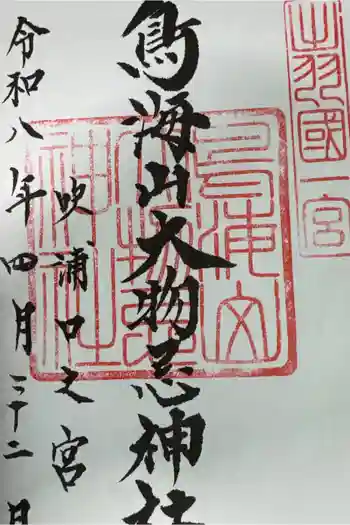 出羽國一宮
鳥海山大物忌神社
鳥海山
大物忌
神社
吹浦口之宮
令和八年四月二十二日